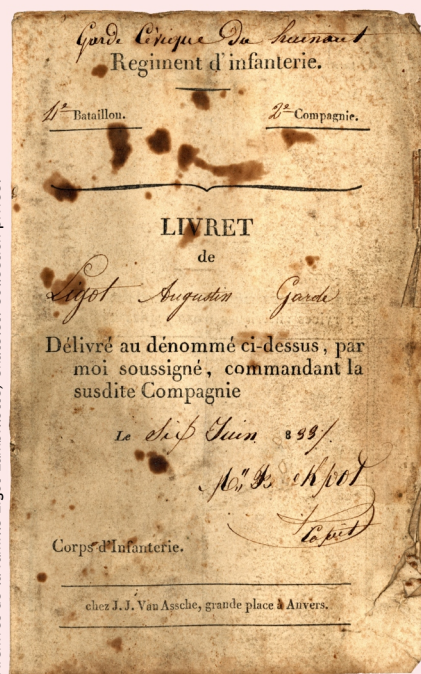 Garde Civique Du hainaut
Regiment d'infanterie.
4e Bataillon. 2e Compagnie.
LIVRET
de
Ligot Augustin Garde
Délivré au dénommé ci-dessus, par
moi soussigné, commandant la
susdite Compagnie
Le Six Juin 183
Corps d'Infanterie.
chez J. J. Van Assche, grande place à Anvers.